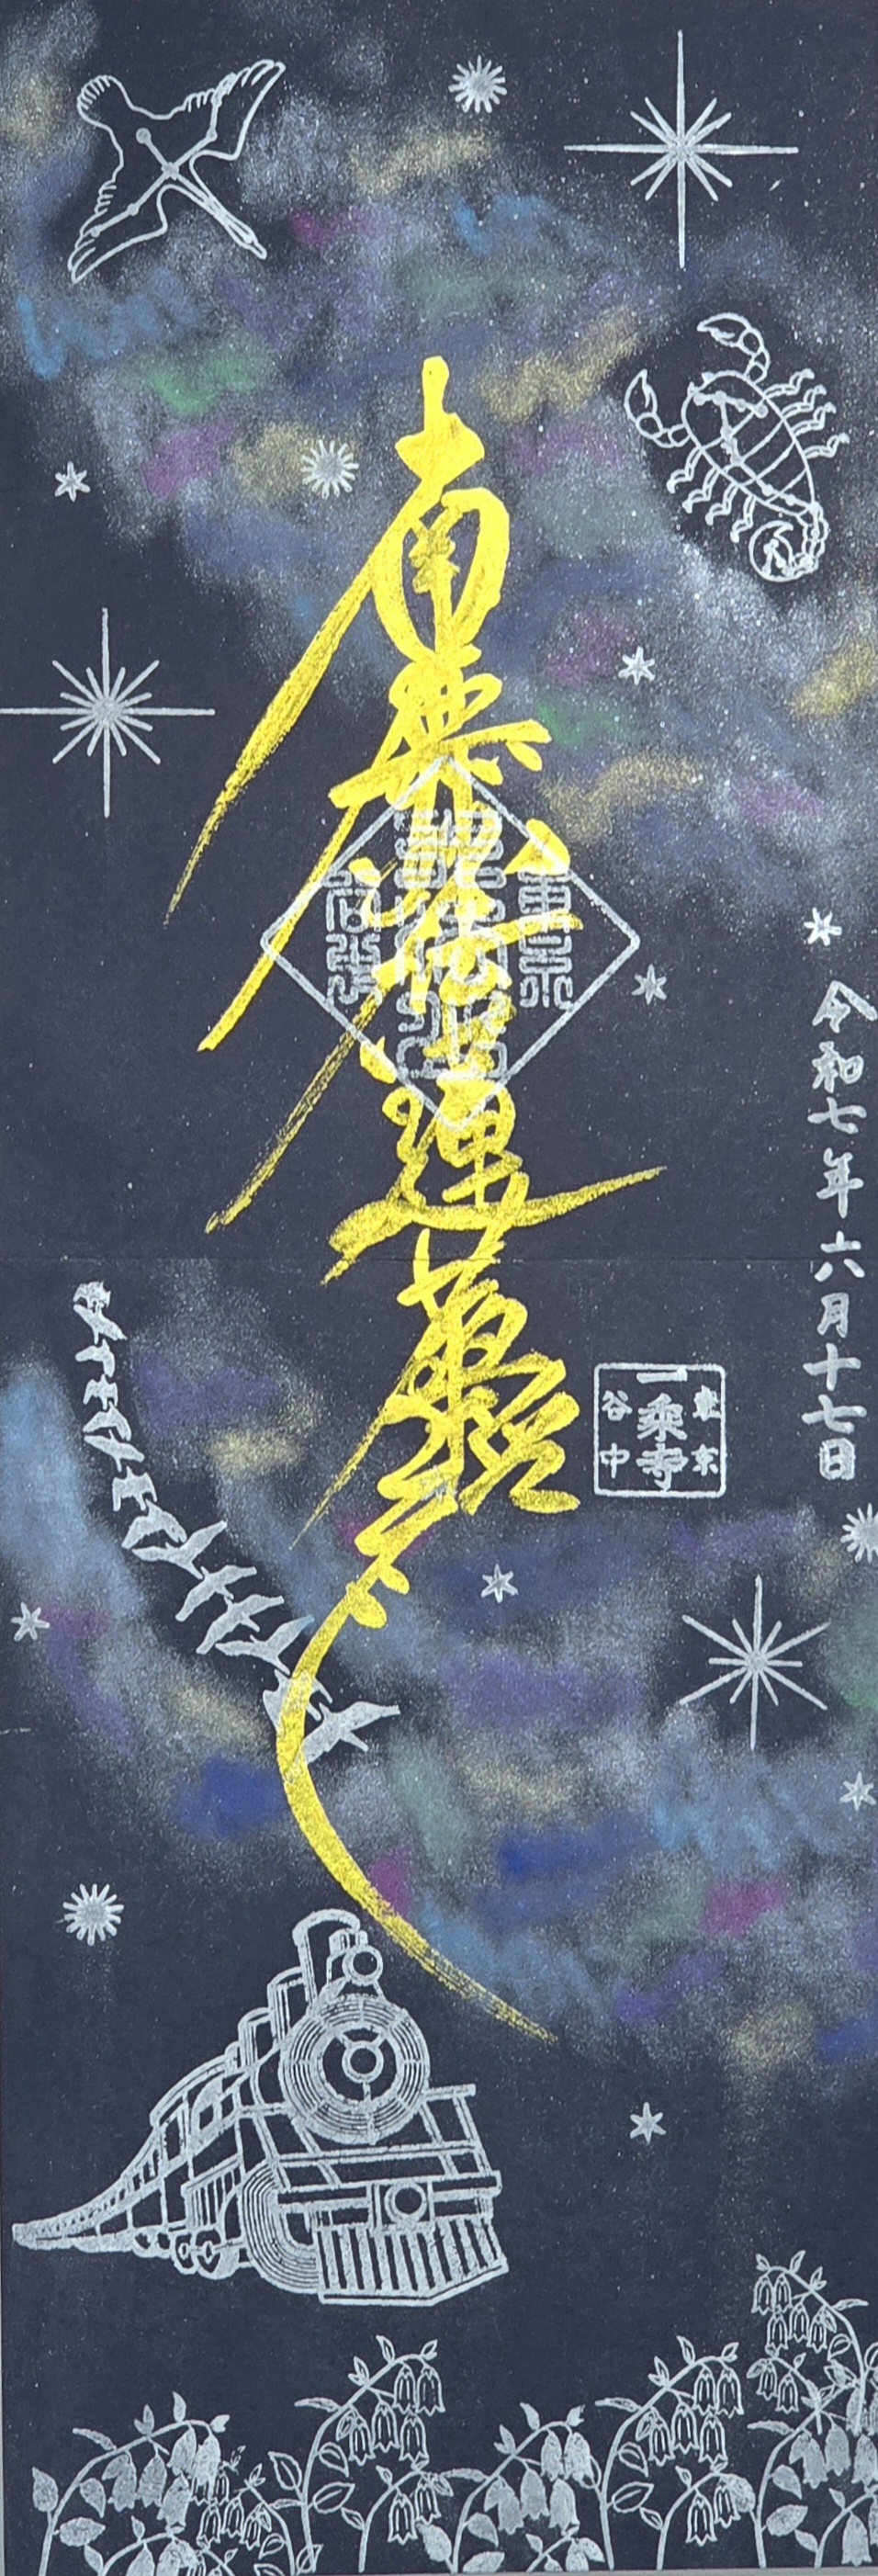 令和七年六月十七日
南無妙法蓮華経
東京
一乘寺
谷中